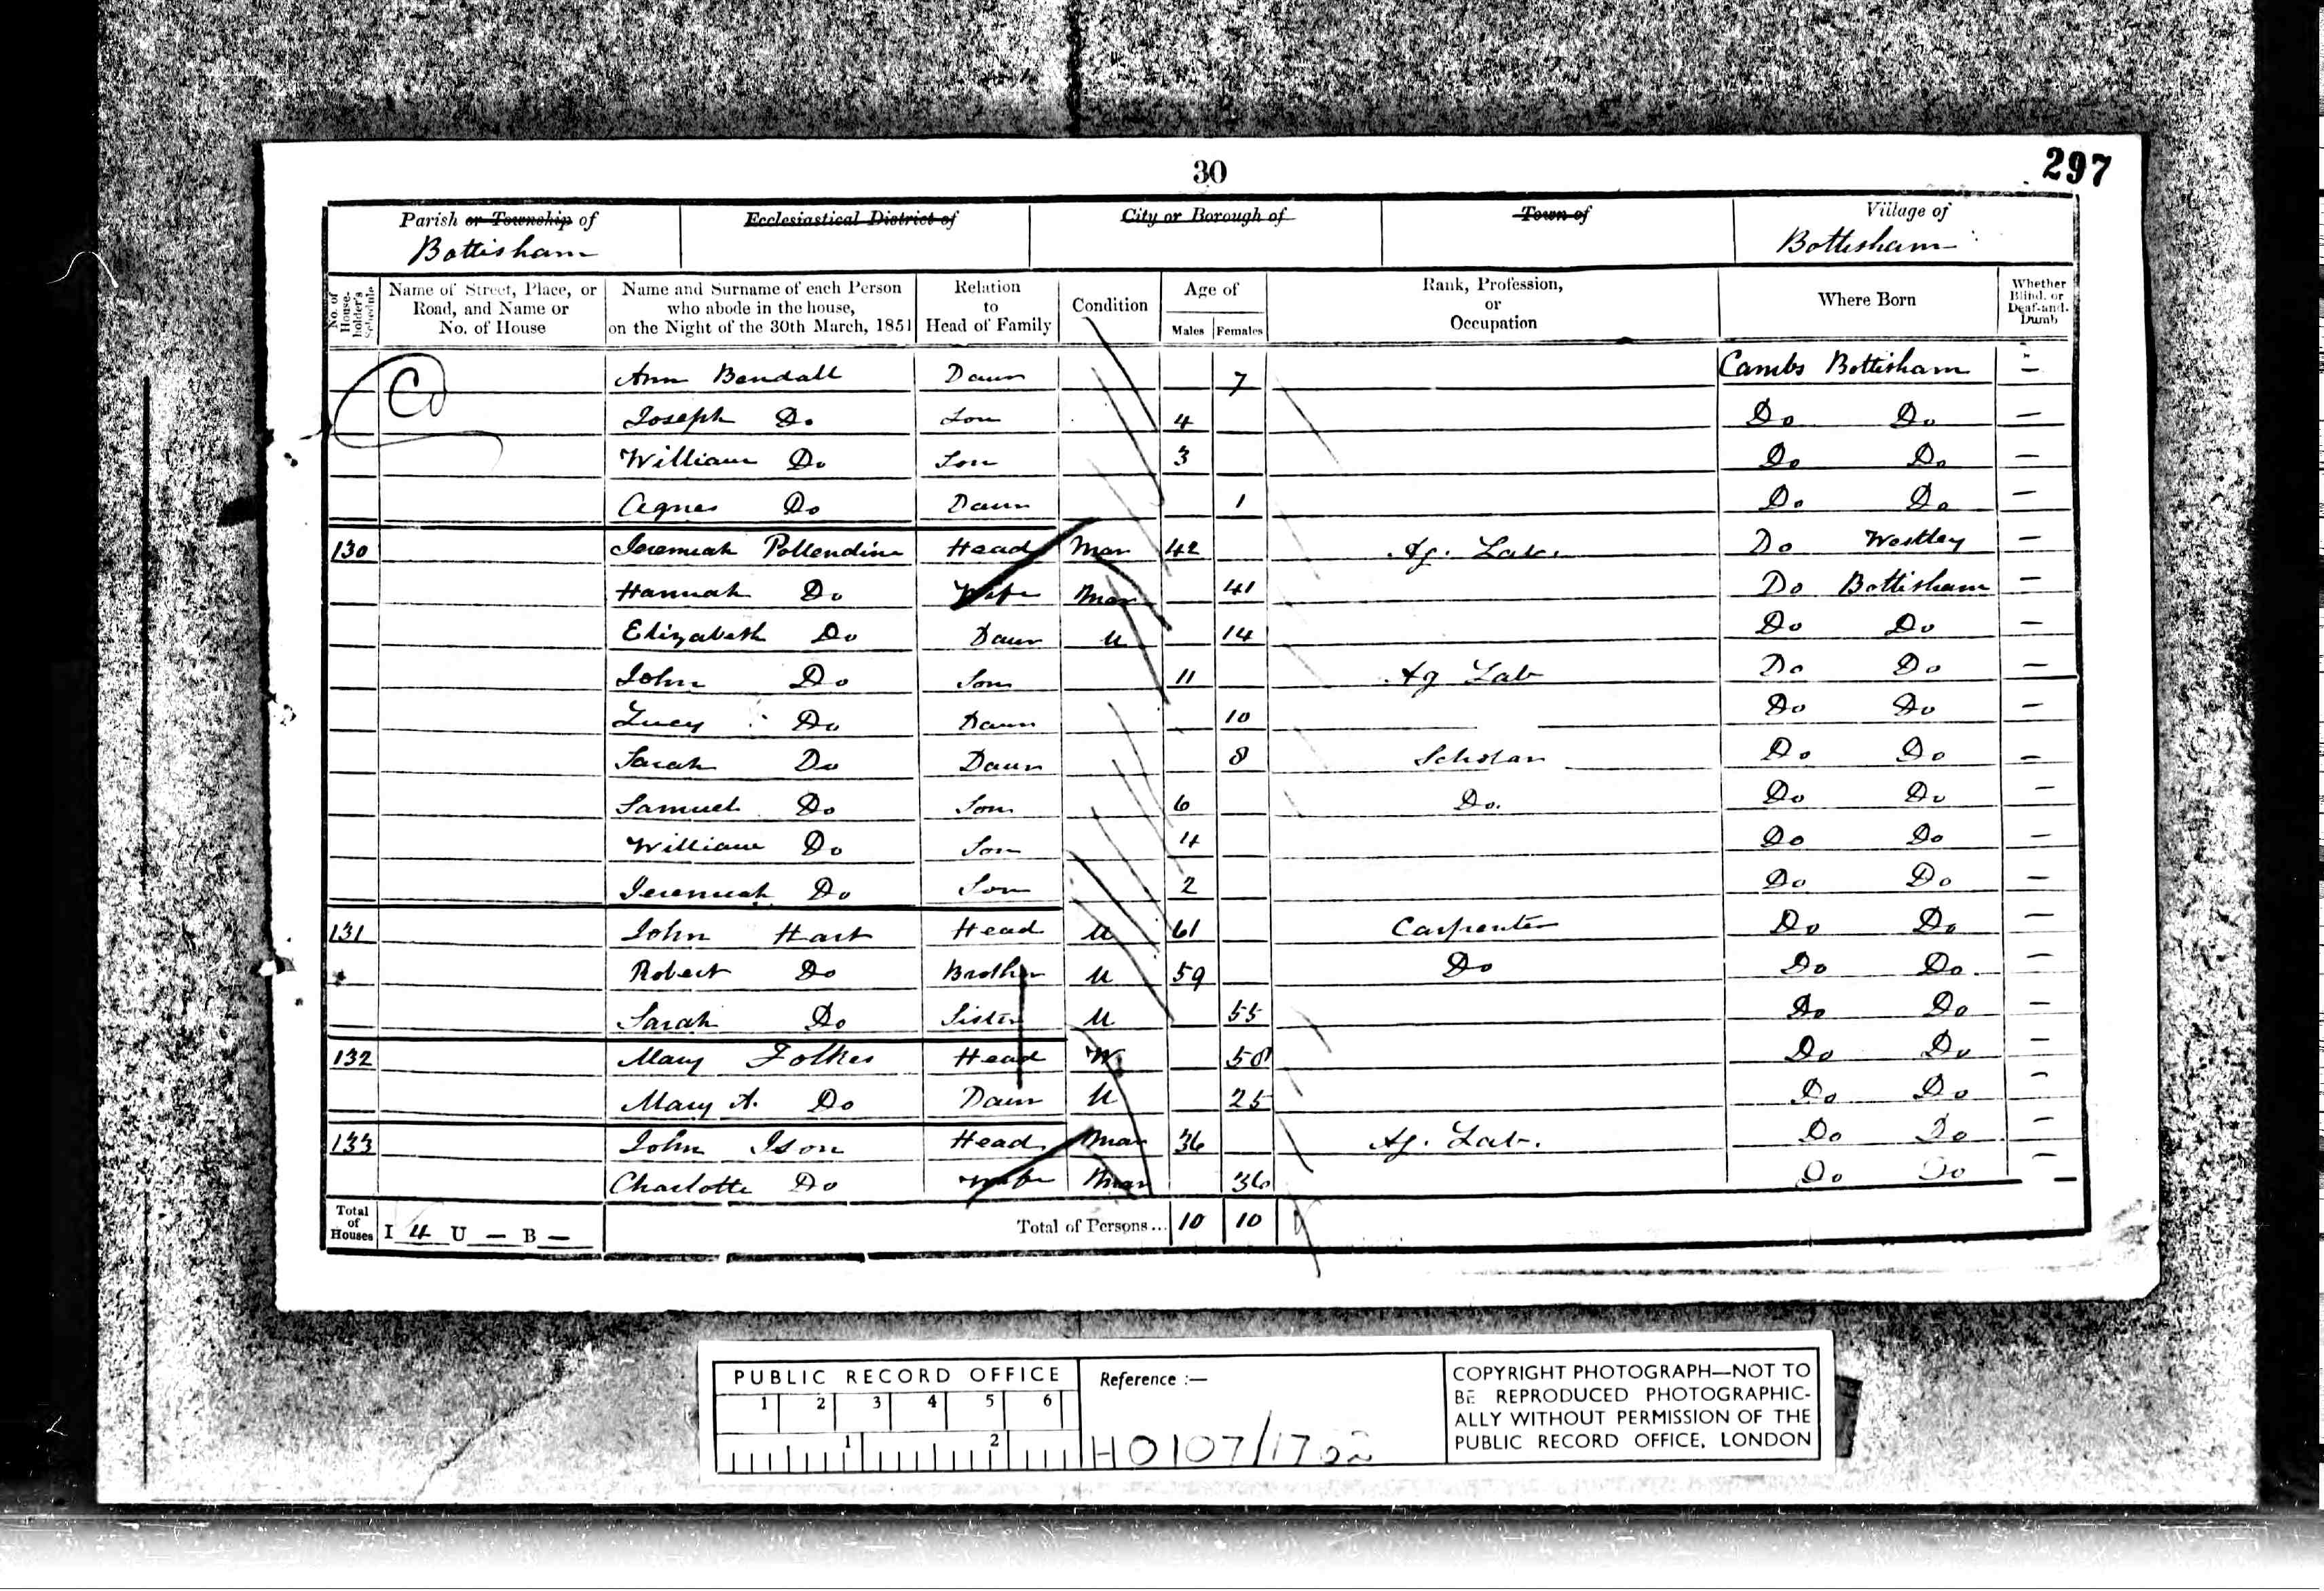 30
297
Parish or Township of Bottisham
Ecclesiastical District of
City or Borough of
Town of
Village of Bottisham
No. of House-holder's Schedule
Name of Street, Place, or Road, and Name or No. of House
Name and Surname of each Person who abode in the house, on the Night of the 30th March, 1851
Relation to Head of Family
Condition
Age of
Males Females
Rank, Profession, or Occupation
Where Born
Whether Blind, or Deaf-and-Dumb
Ann Bendall Daur 7 Cambs Bottisham —
Joseph Do Son 4 Do Do —
William Do Son 3 Do Do —
Agnes Do Daur 1 Do Do —
130 Jeremiah Pollendine Head Mar 42 Ag. Lab. Do Westley —
Hannah Do Wife Mar 41 Do Bottisham —
Elizabeth Do Daur U 14 Do Do —
John Do Son 11 Ag Lab Do Do —
Lucy Do Daur 10 Do Do —
Sarah Do Daur 8 Scholar Do Do —
Samuel Do Son 6 Do. Do Do —
William Do Son 4 Do Do —
Jeremiah Do Son 2 Do Do —
131 John Hart Head U 61 Carpenter Do Do —
Robert Do Brother U 59 Do Do Do. —
Sarah Do Sister U 55 Do Do —
132 Mary Folkes Head W 58 Do Do —
Mary A. Do Daur U 25 Do Do —
133 John Ison Head Mar 36 Ag. Lab. Do Do —
Charlotte Do Wife Mar 36 Do Do —
Total of Houses I 4 U — B — Total of Persons... 10 10
PUBLIC RECORD OFFICE
1 2 3 4 5 6
1 2
Reference :—
HO107/1762
COPYRIGHT PHOTOGRAPH—NOT TO
BE REPRODUCED PHOTOGRAPHIC-
ALLY WITHOUT PERMISSION OF THE
PUBLIC RECORD OFFICE, LONDON